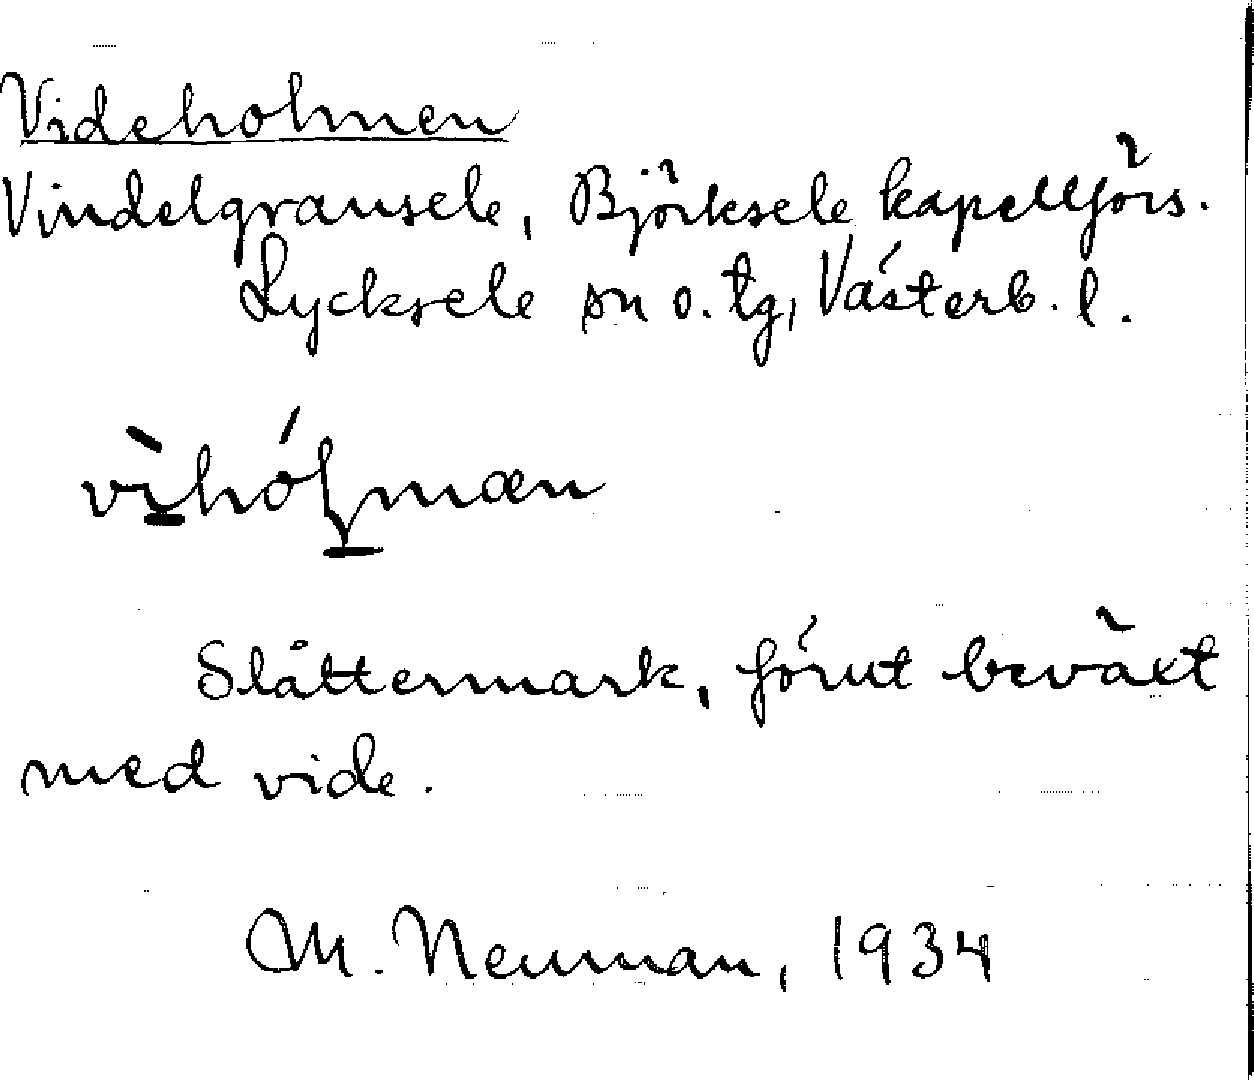 Videholmen
Vindelgransele, Björksele kapellförs.
Lycksele sn o. tg, Västerb. l.
Slåttermark, förut beväxt
med vide.
M. Neuman, 1934